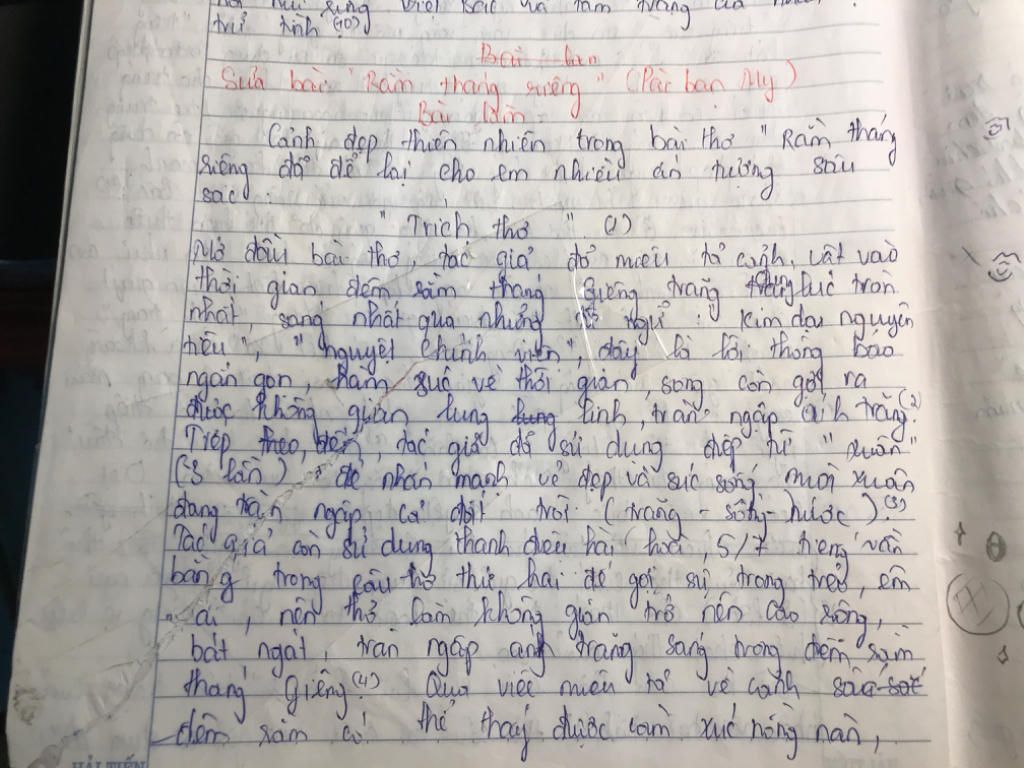 trữ tình (10)
Bài làm
Sửa bài "Rằm tháng riêng" (Bài bạn My)
Bài làm
Cảnh đẹp thiên nhiên trong bài thơ "Rằm tháng
riêng đã để lại cho em nhiều ấn tượng sâu
sắc.
"Trích thơ" (1)
Mở đầu bài thơ, tác giả đã miêu tả cảnh vật vào
thời gian đêm rằm tháng Giêng trăng lúc tròn
nhất, sáng nhất qua những từ ngữ: Kim dạ nguyên
tiêu", "nguyệt chính viên", đây là lối thông báo
ngắn gọn, hàm xúc về thời gian, song còn gợi ra
được không gian lung lung linh, tràn ngập ánh trăng. (2)
Tiếp theo, đến, tác giả đã sử dụng điệp từ "xuân"
(3 lần) để nhấn mạnh vẻ đẹp và sức sống mùi xuân
đang tràn ngập cả đất trời (trăng - sông - nước). (3)
Tác giả còn sử dụng thanh điệu hài hoà, 5/7 tiếng vần
bằng trong câu thơ thứ hai để gợi sự trong trẻo, êm
ái, nên thơ làm không gian trở nên cao rộng,
bát ngát, tràn ngập ánh trăng sáng trong đêm rằm
tháng giêng. (4) Qua việc miêu tả vẻ cảnh sâu sắc
đêm rằm có thể thấy được cảm xúc nồng nàn,
HẢI TIẾN